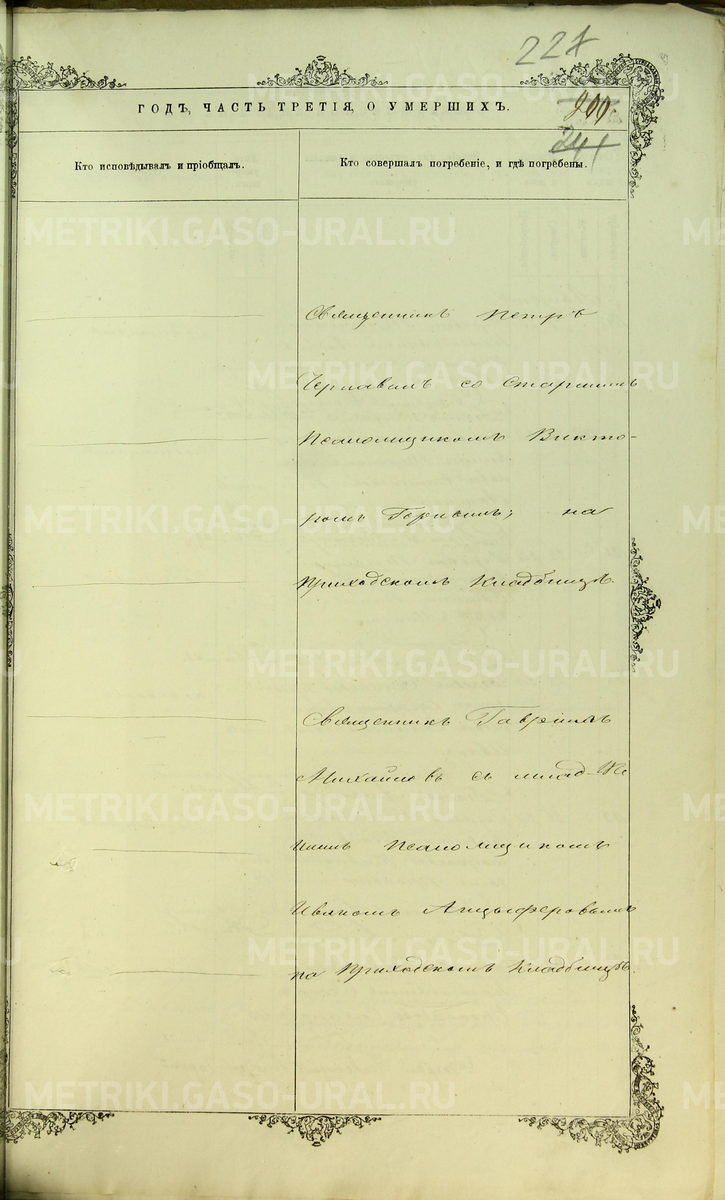 227
ГОДЪ, ЧАСТЬ ТРЕТІЯ, О УМЕРШИХЪ.
200.
241
Кто исповѣдывалъ и пріобщалъ.
Кто совершалъ погребеніе, и гдѣ погребены.
Священникъ Петръ
со старшимъ
Псаломщикомъ Викто-
ромъ на
приходскомъ кладбищѣ.
Священникъ Гавріилъ
Михайловъ съ млад-
шимъ Псаломщикомъ
Иваномъ Анцыферовымъ
на Приходскомъ Кладбищѣ.
METRIKI.GASO-URAL.RU